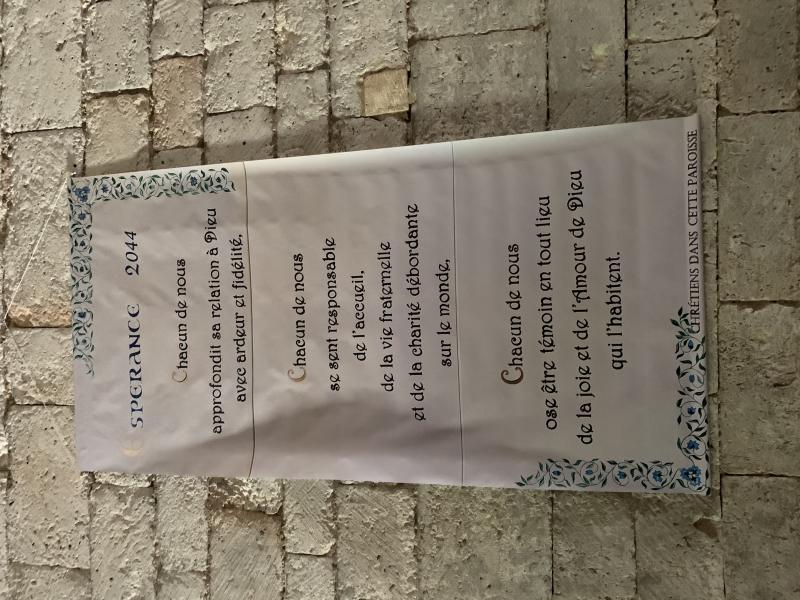 ESPERANCE 2044
Chacun de nous
approfondit sa relation à Dieu
avec ardeur et fidélité,
Chacun de nous
se sent responsable
de l'accueil,
de la vie fraternelle
et de la charité débordante
sur le monde,
Chacun de nous
ose être témoin en tout lieu
de la joie et de l'Amour de Dieu
qui l'habitent.
CHRÉTIENS DANS CETTE PAROISSE